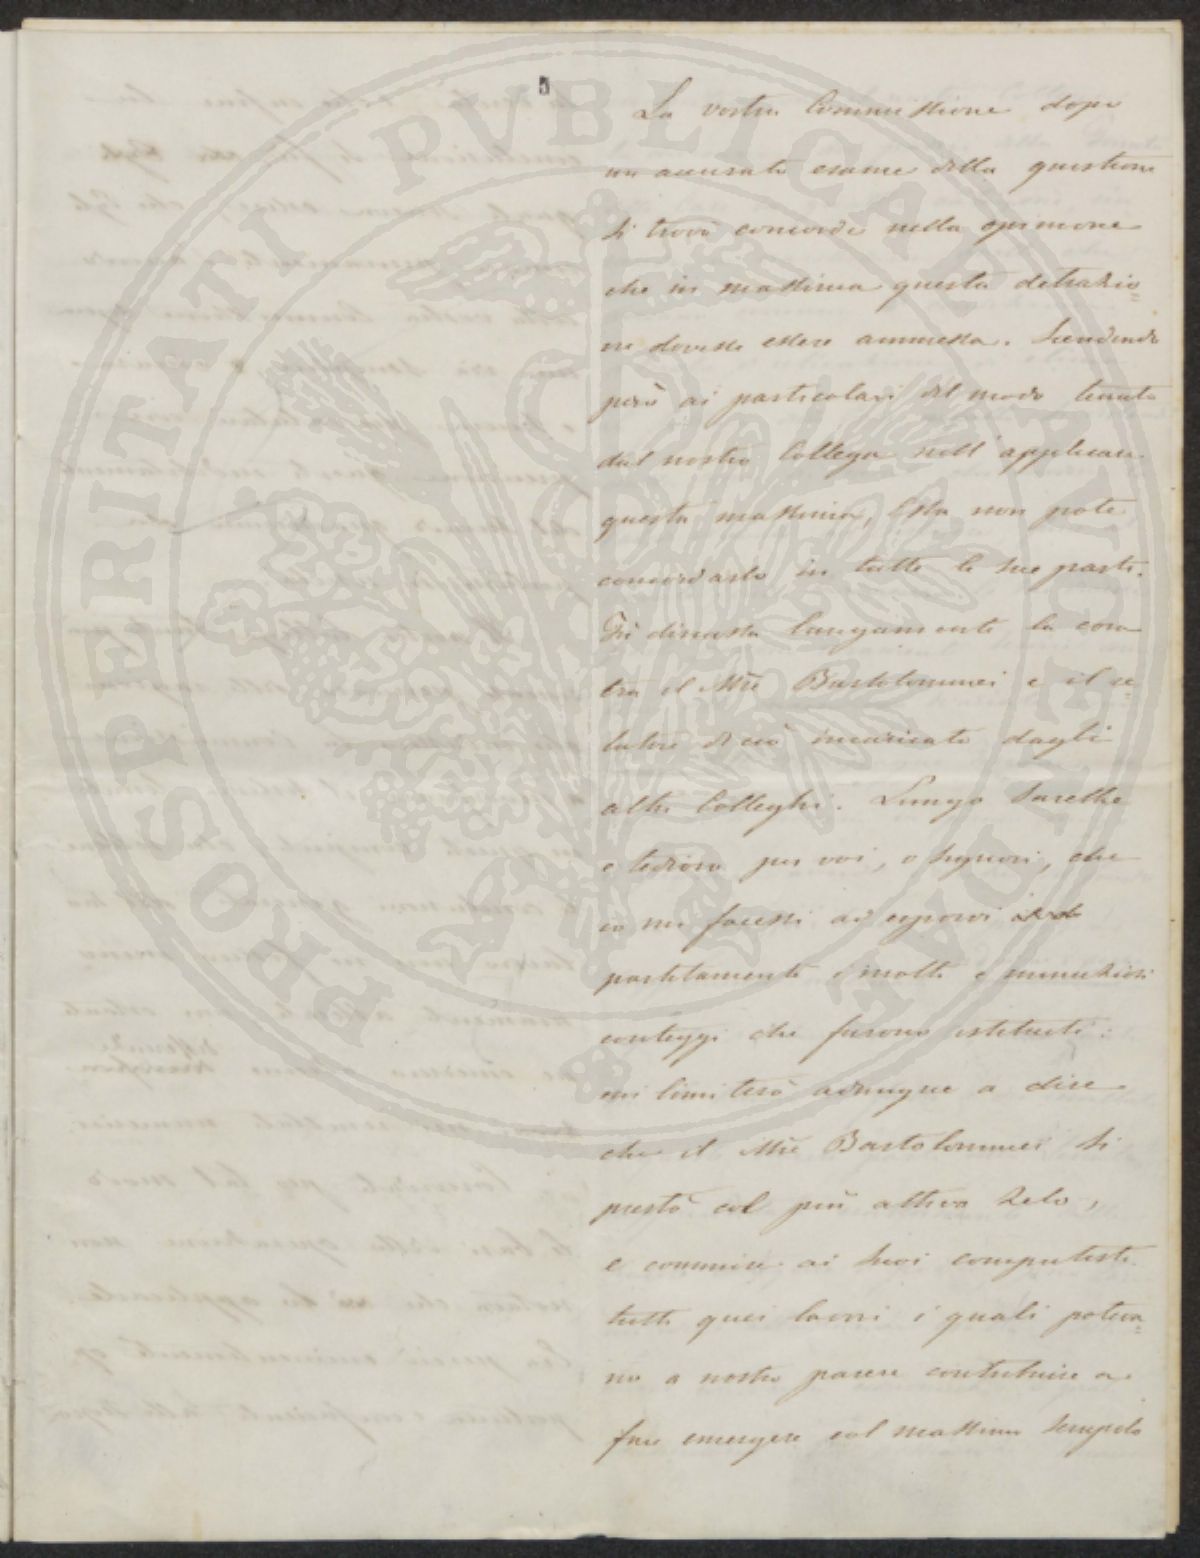 5
La vostra Commissione dopo
un accurato esame della questione
si trovò concorde nella opinione
che in massima questa detrazio=
ne dovesse essere ammessa. Scendendo
però ai particolari del modo tenuto
dal nostro Collega nell'applicare
questa massima, Essa non potè
concordarlo in tutte le sue parti.
Fù discussa lungamente la cosa
tra il Mse Bartolommei e il re=
latore di ciò incaricato dagli
altri Colleghi. Lungo sarebbe
e tedioso per voi, o Signori, che
io mi facessi ad esporvi
partitamente i molti e minuziosi
conteggi che furono istituiti:
mi limiterò adunque a dire
che il Mse Bartolommei si
prestò col più attivo zelo,
e commise ai suoi computisti
tutti quei lavori i quali poteva=
no a nostro parere contribuire a
fare emergere col massimo scrupolo
PROSPERITATI PVBLICAE AVGENDAE